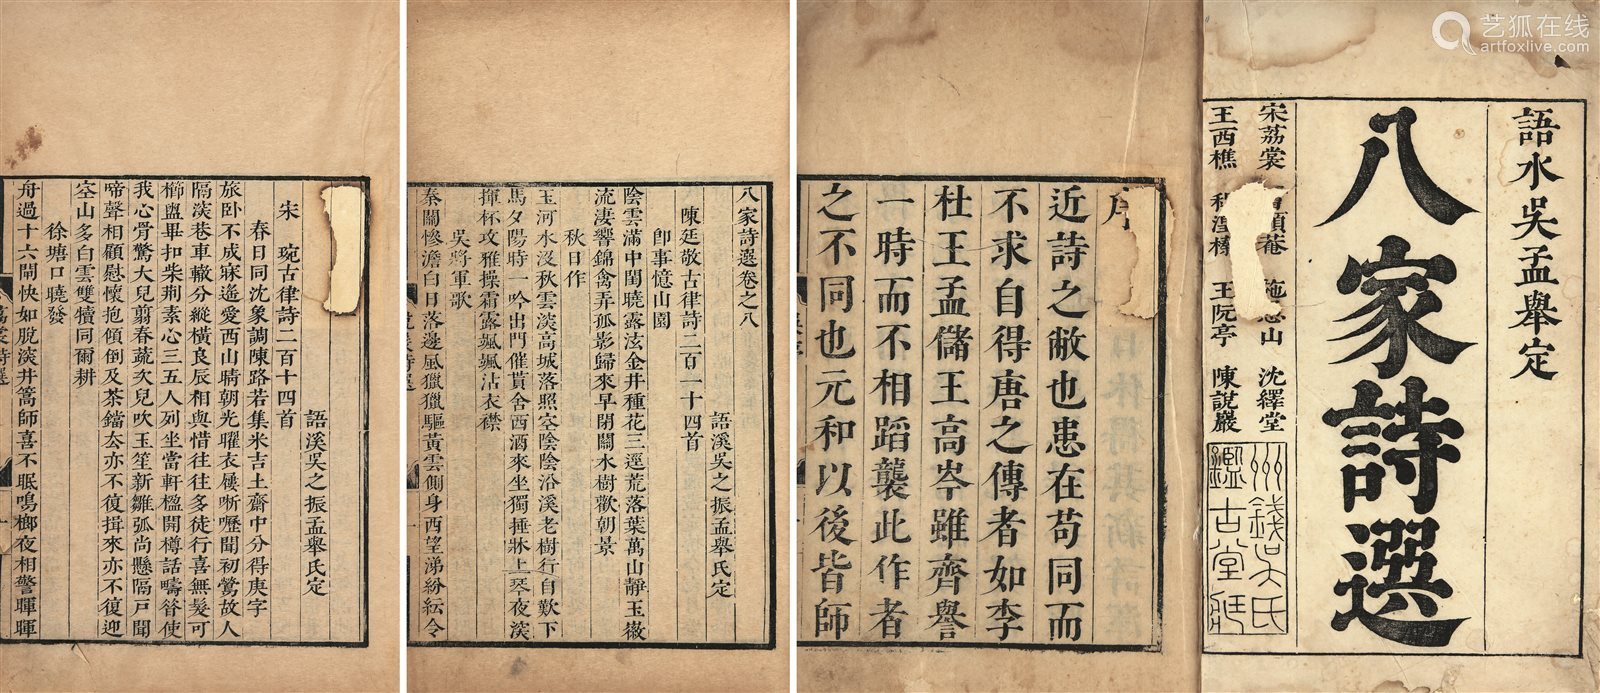 艺狐在线
artfoxlive.com
語水吳孟舉定
八家詩選
宋荔裳 顧菴 施愚山 沈繹堂
王西樵 王阮亭 陳說巖
州錢吳氏
鑑古堂
序
近詩之敝也患在苟同而
不求自得唐之傳者如李
杜王孟儲王高岑雖齊譽
一時而不相蹈襲此作者
之不同也元和以後皆師
八家詩選卷之八
語溪吳之振孟舉氏定
陳廷敬古律詩二百一十四首
卽事憶山園
陰雲滿中閨曉露泫金井種花三逕荒落葉萬山靜玉徽
流淒響錦禽弄孤影歸來早閉關水樹歡朝景
秋日作
玉河水沒秋雲淡高城落照空陰陰沿溪老樹行自歎下
馬夕陽時一吟出門催貰舍西酒來坐獨捶牀上琴夜深
揮杯攻雅操霜露颯颯沾衣襟
吳將軍歌
秦關慘澹白日落邊風獵獵驅黃雲側身西望涕紛紜今
語溪吳之振孟舉氏定
宋 琬古律詩二百十四首
春日同沈象調陳路若集米吉土齋中分得庚字
旅卧不成寐遙愛西山晴朝光曜衣屐嘶嚦聞初鶯故人
隔深巷車轍分縱橫良辰相與惜往往多徒行喜無髮可
櫛盥畢扣柴荆素心三五人列坐當軒楹開樽話疇昝使
我心骨驚大兒翦春蔬次兒吹玉笙新雛弧尚懸隔戸聞
啼聲相顧慰懷抱傾倒及茶鐺厺亦不復揖來亦不復迎
空山多白雲雙犢同爾耕
徐塘口曉發
舟過十六閘快如脫深井篙師喜不眠鳴榔夜相警暉暉